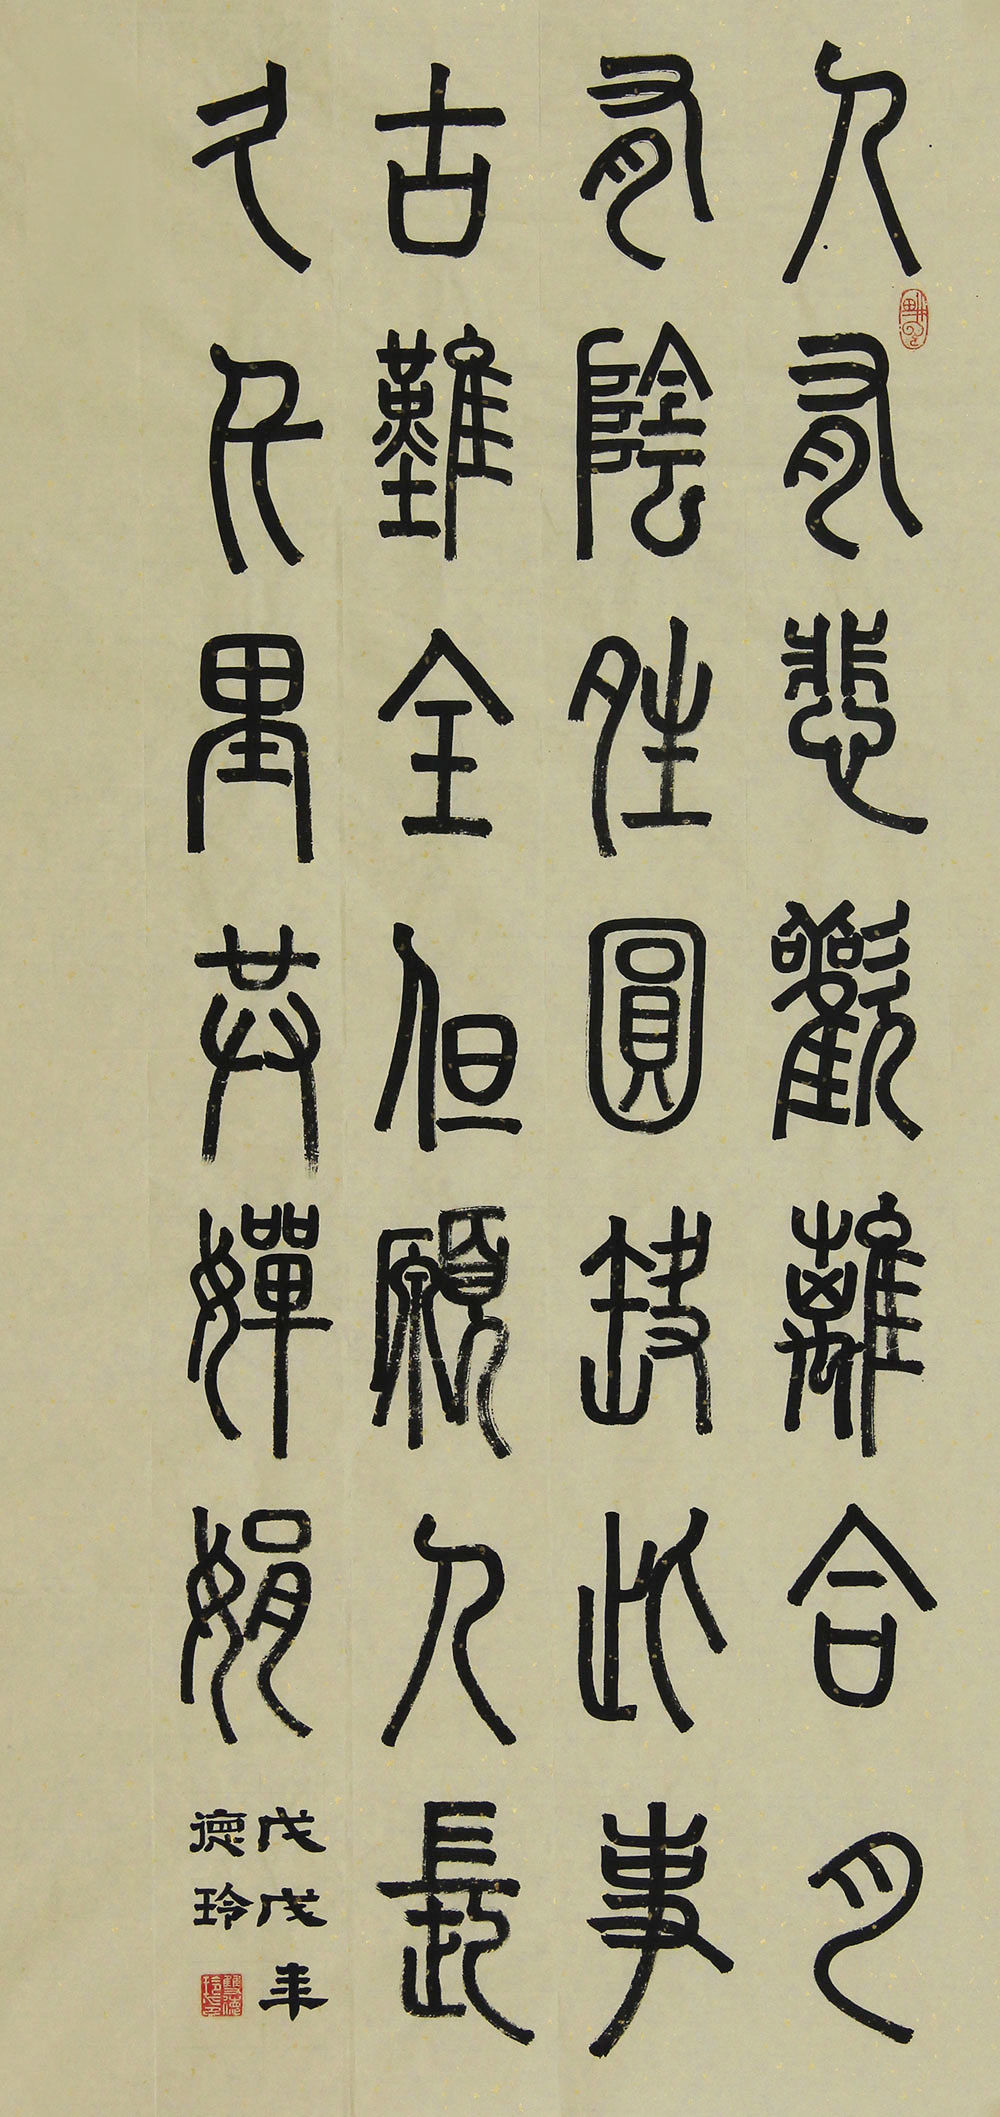 人有悲歡離合月
有陰晴圓缺此事
古難全但願人長
久千里共嬋娟
戊戌年
德玲